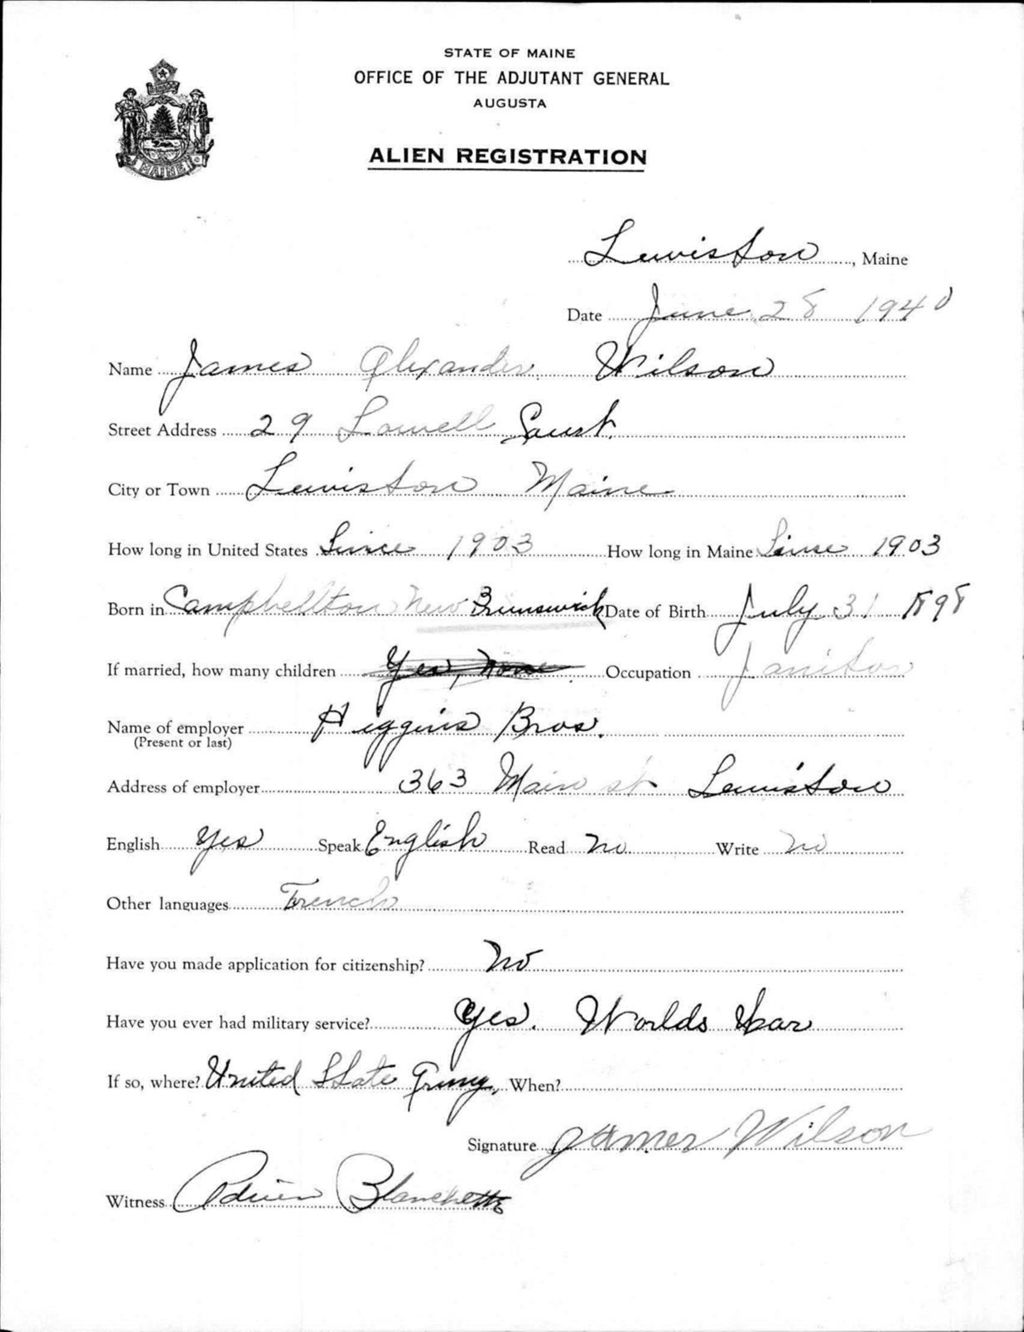 STATE OF MAINE
OFFICE OF THE ADJUTANT GENERAL
AUGUSTA
ALIEN REGISTRATION
MAINE
Lewiston, Maine
Date June 28 1940
Name James Alexander Wilson
Street Address 29 Lowell Court
City or Town Lewiston Maine
How long in United States Since 1903 How long in Maine Since 1903
Born in Campbellton New Brunswick Date of Birth July 31 1898
If married, how many children Yes, None Occupation Janitor
Name of employer Higgins Bros.
(Present or last)
Address of employer 363 Main st Lewiston
English Yes Speak English Read No Write No
Other languages French
Have you made application for citizenship? No
Have you ever had military service? Yes. Worlds War
If so, where? United State Army, When?
Signature James Wilson
Witness Adrien Blanchette